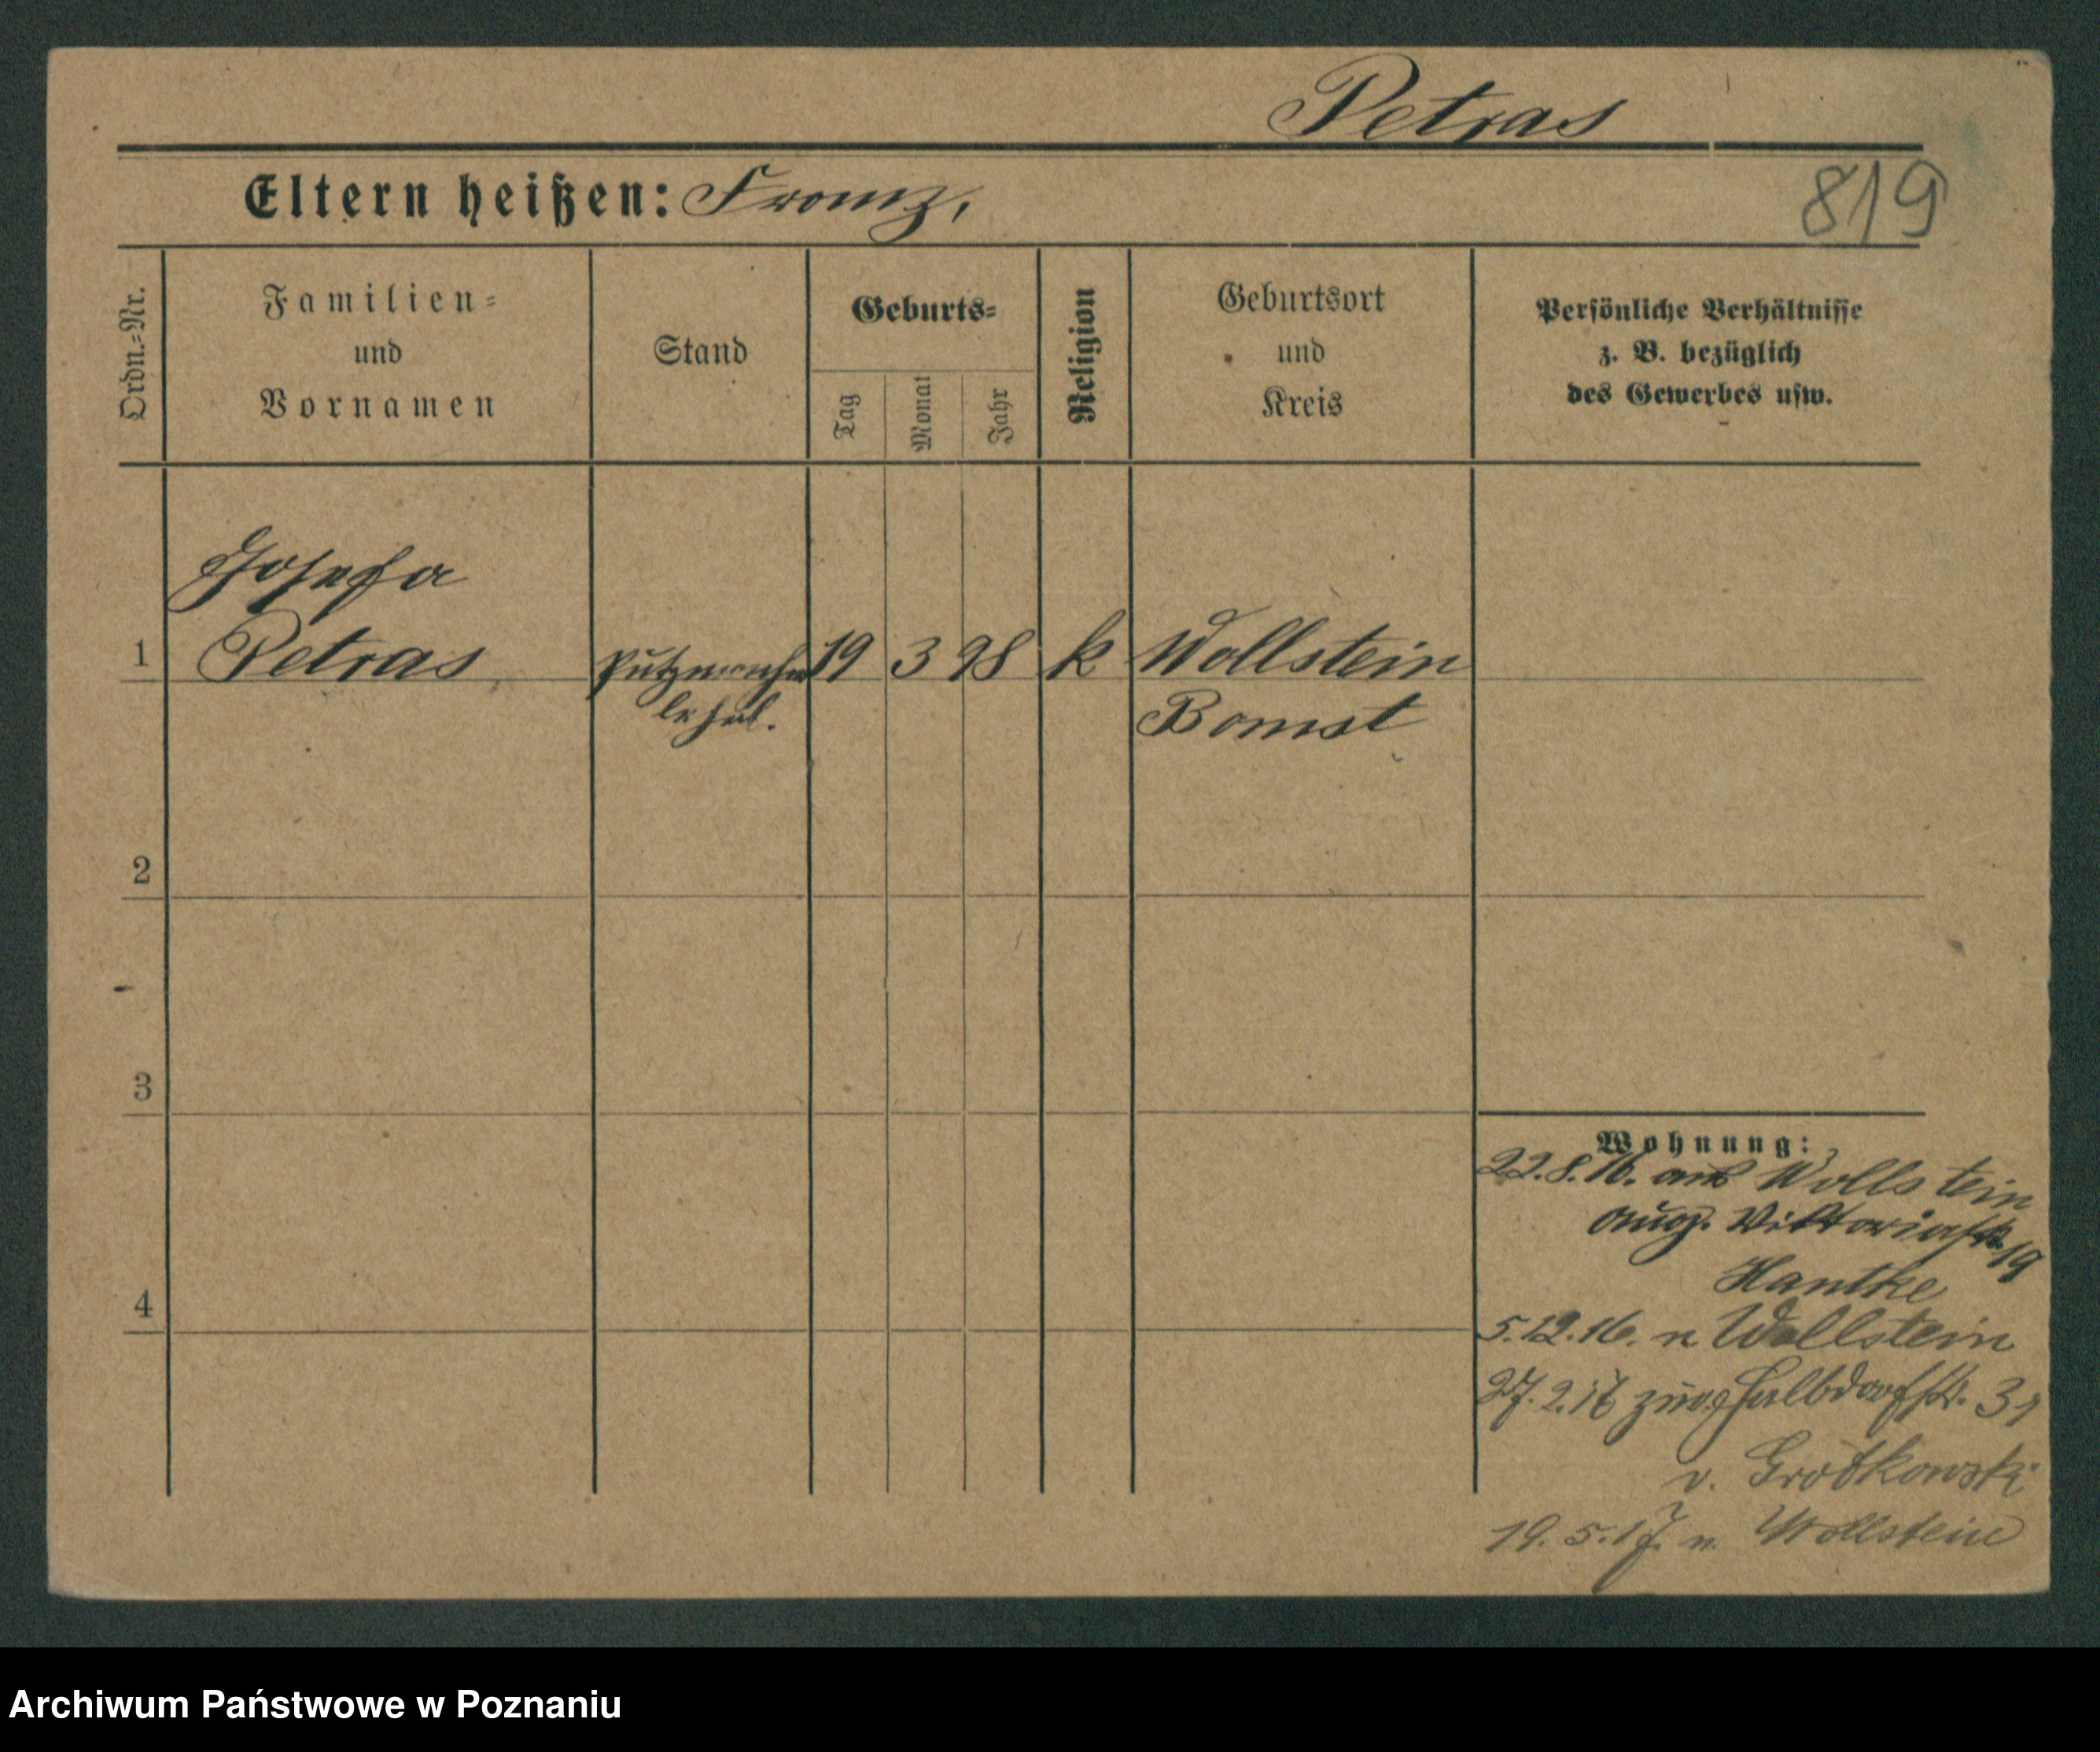 Petras
Eltern heißen: Franz,
819
Ordn.-Nr.
Familien-
und
Vornamen
Stand
Geburts-
Tag
Monat
Jahr
Religion
Geburtsort
und
Kreis
Persönliche Verhältnisse
z. B. bezüglich
des Gewerbes usw.
Josefa
1 Petras 19 3 98 k Wollstein
Bomst
2
3
4
Wohnung:
22.8.16. aus Wollstein
Aug. Viktoriastr. 19
Hantke
5.12.16. n Wollstein
27.2.17 Halbdorfstr. 31
v. Grotkowski
19.5.17. n. Wollstein
Archiwum Państwowe w Poznaniu